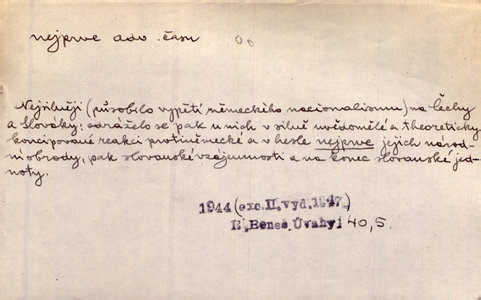 nejprve adv. času
Nejsilněji (působilo vypětí německého nacionalismu) na Čechy
a Slováky: odráželo se pak u nich v silně uvědomělé a theoreticky
koncipované reakci protiněmecké a v hesle nejprve jejich národ-
ní obrody, pak slovanské vzájemnosti a na konec slovanské jed-
noty.
1944 (exc. II. vyd. 1947)
E. Beneš, Úvahy, 40,5.